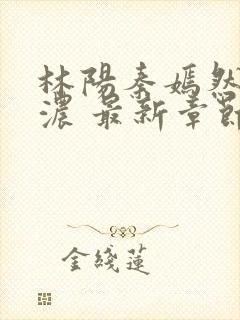 林陽秦嫣然
濃 最新章節
金綫蓮